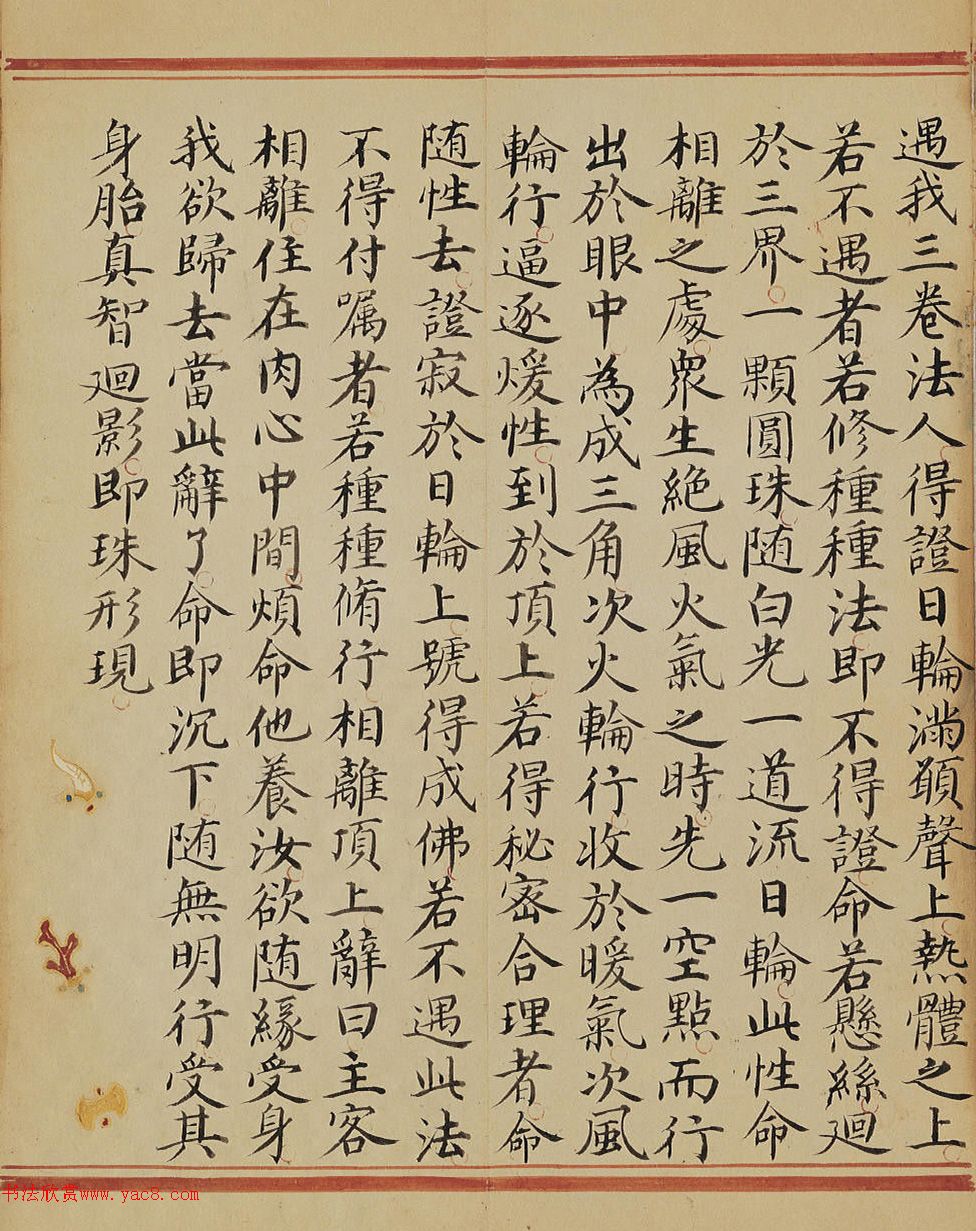 遇我三卷法人得證日輪滿頭聲上熱體之上
若不遇者若修種種法即不得證命若懸絲迴
於三界一顆圓珠随白光一道流日輪此性命
相離之處衆生絕風火氣之時先一空點而行
出於眼中為成三角次火輪行收於暖氣次風
輪行逼逐煖性到於頂上若得秘密合理者命
随性去證寂於日輪上號得成佛若不遇此法
不得付嘱者若種種脩行相離頂上辭曰主客
相離住在肉心中間煩命他養汝欲随緣受身
我欲歸去當此辭了命即沉下随無明行受其
身胎真智迴影即珠形現
书法欣赏www.yac8.com